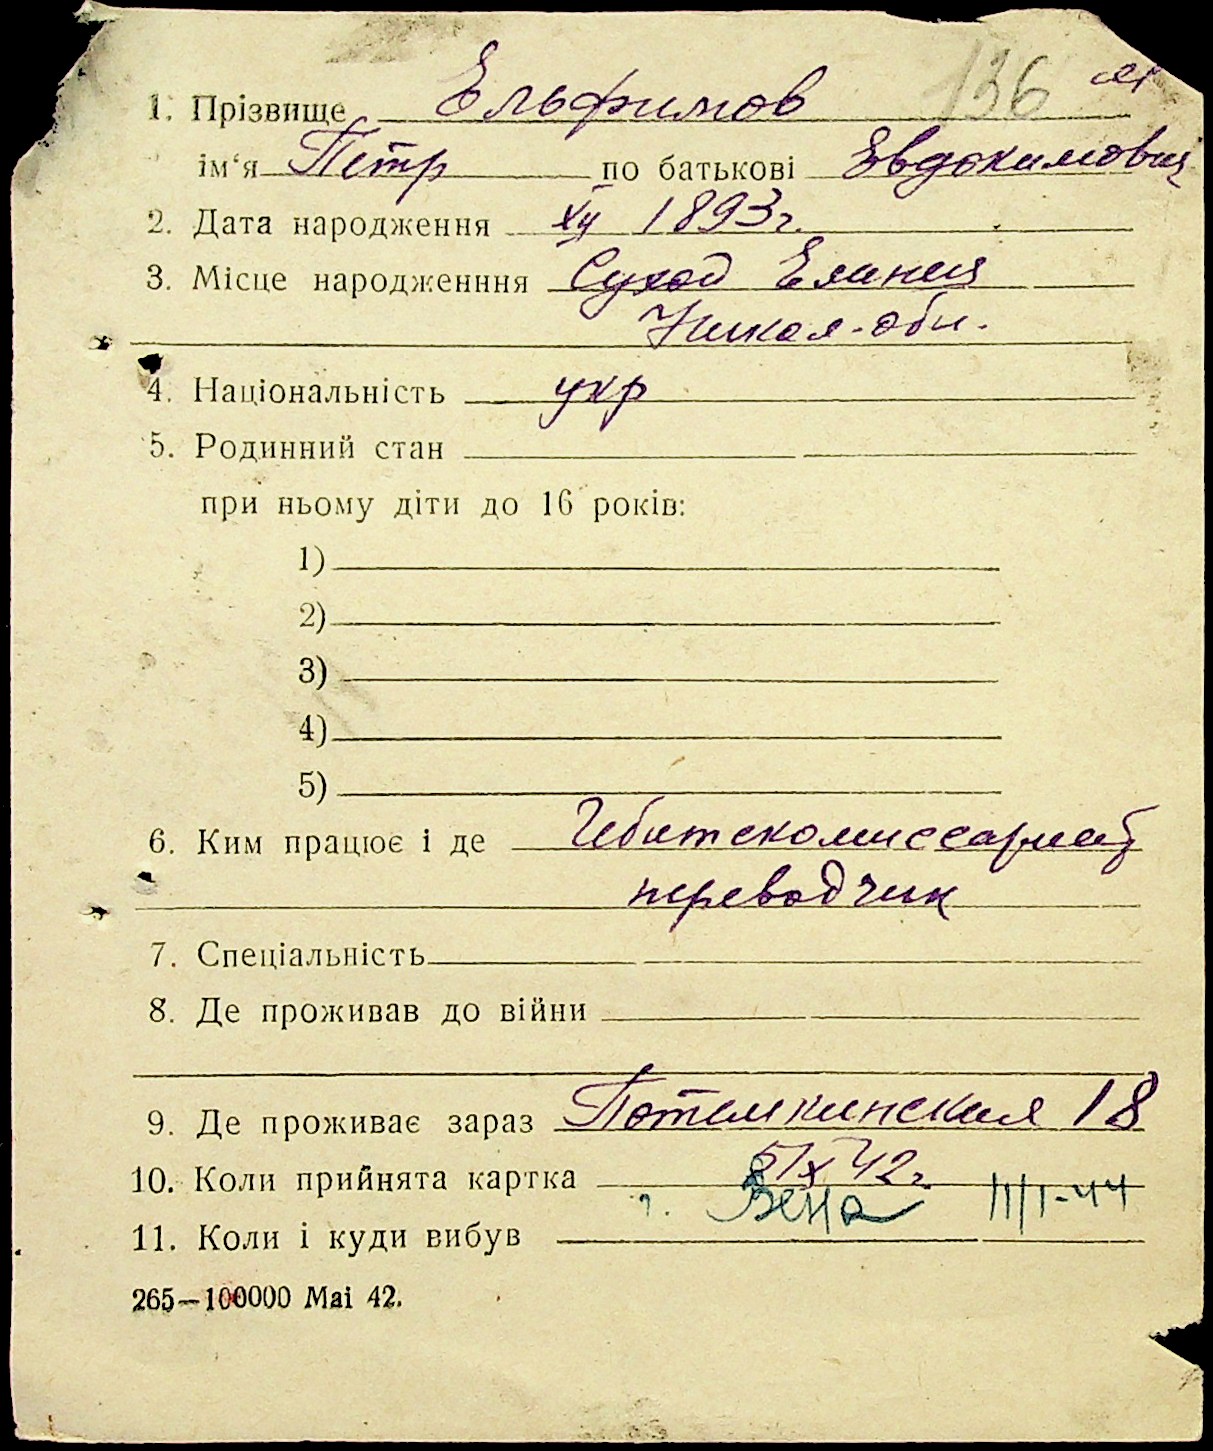 136
1. Прізвище Ельфимов
ім‘я Петр по батькові Евдокимович
2. Дата народження XII 1893г.
3. Місце народженння Сухой Еланец
Никол. обл.
4. Національність укр
5. Родинний стан
при ньому діти до 16 років:
1)
2)
3)
4)
5)
6. Ким працює і де Гебитскомиссариат
переводчик
7. Спеціальність
8. Де проживав до війни
9. Де проживає зараз Потемкинская 18
10. Коли прийнята картка 5/X 42г.
г. Вена 11/I-44
11. Коли і куди вибув
265—100000 Mai 42.